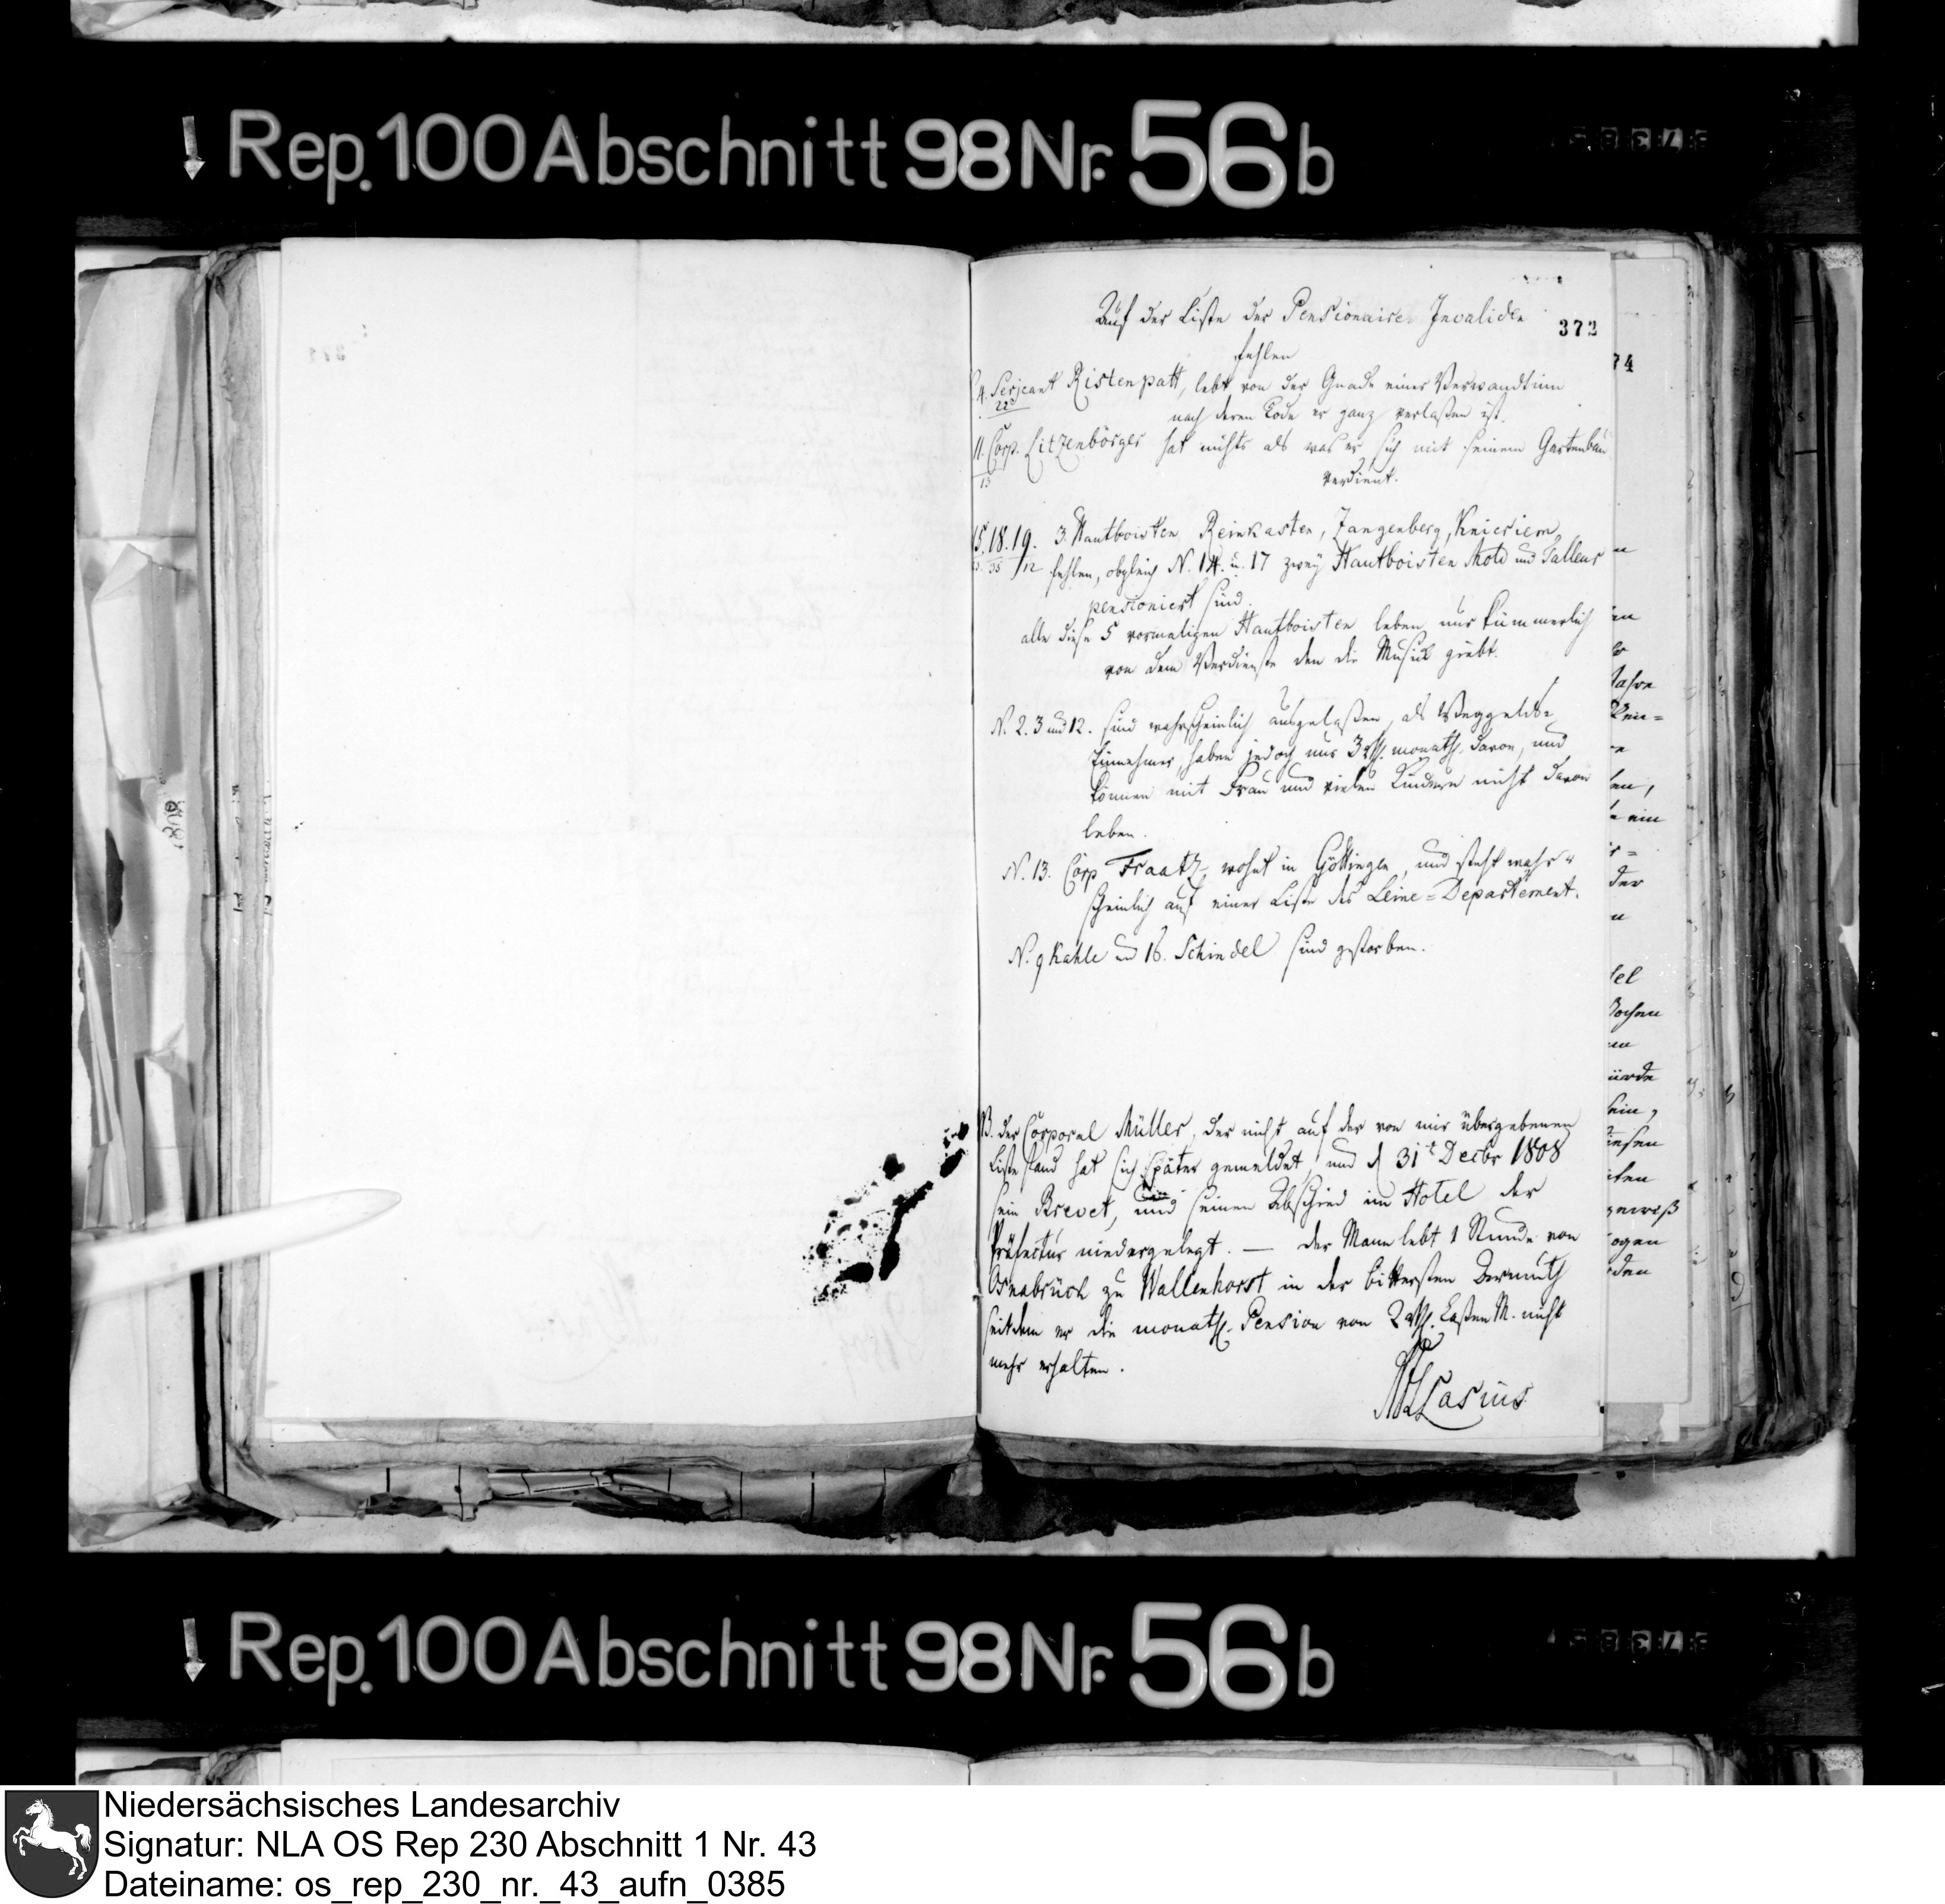 Rep. 100 Abschnitt 98 Nr. 56 b
372
Auf der Liste der Pensionairen Invaliden
fehlen
4. Serjeant Ristenpatt, lebt von der Gnade einer Verwandtinn
22
nach deren Tode er ganz verlaßen ist.
11. Corp. Litzenbörger hat nichts als was er sich mit seinem Gartenbau
13
verdient.
15. 18. 19. 3. Hautboisten Reinkasten, Zangenberg, Knieriem,
35 /12 fehlen, obgleich N. 14. u. 17 zwey Hautboisten Mold und Tallens
pensioniert sind.
alle diese 5 vormaligen Hautboisten leben nur kümmerlich
von dem Verdienste den die Musick giebt.
N. 2. 3 und 12. sind wahrscheinlich ausgelaßen, als Weggelds-
Einnehmer, haben jedoch nur 3 rth. monath. davon, und
können mit Frau und vielen Kindern nicht davon
leben.
N. 13. Corp Fraatz, wohnt in Göttingen, und steht wahr-
scheinlich auf einer Liste des Leine-Departement.
N. 9 Kahle und 16. Schindel sind gestorben.
NB. der Corporal Müller, der nicht auf der von mir übergebenen
Liste stand hat sich später gemeldet, und d 31t Decbr 1808
sein Brevet, und seinen Abschied im Hotel der
Präfectur niedergelegt. — der Mann lebt 1 Stunde von
Osnabrück zu Wallenhorst in der bittersten Armuth
seitdem er die monath. Pension von 2 rth. Caßen M. nicht
mehr erhalten.
Lasius
74
Rep. 100 Abschnitt 98 Nr. 56 b
Niedersächsisches Landesarchiv
Signatur: NLA OS Rep 230 Abschnitt 1 Nr. 43
Dateiname: os_rep_230_nr._43_aufn_0385